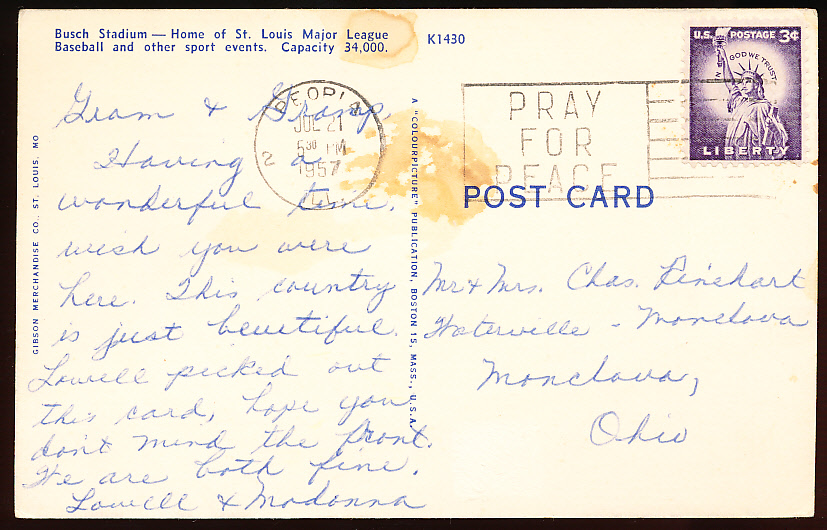 Busch Stadium — Home of St. Louis Major League
Baseball and other sport events. Capacity 34,000.
K1430
U.S. POSTAGE 3¢
IN GOD WE TRUST
LIBERTY
PEORIA
JUL 21
5 30 PM
1957
2
ILL
PRAY
FOR
PEACE
POST CARD
GIBSON MERCHANDISE CO., ST. LOUIS, MO
A "COLOURPICTURE" PUBLICATION, BOSTON 15, MASS., U.S.A.
Gram & Gramp,
Having a
wonderful time,
wish you were
here. This country
is just beautiful.
Lowell picked out
this card, hope you
don't mind the front.
We are both fine.
Lowell & Madonna
Mr & Mrs. Chas. Rinehart
Waterville - Monclova
Monclova,
Ohio